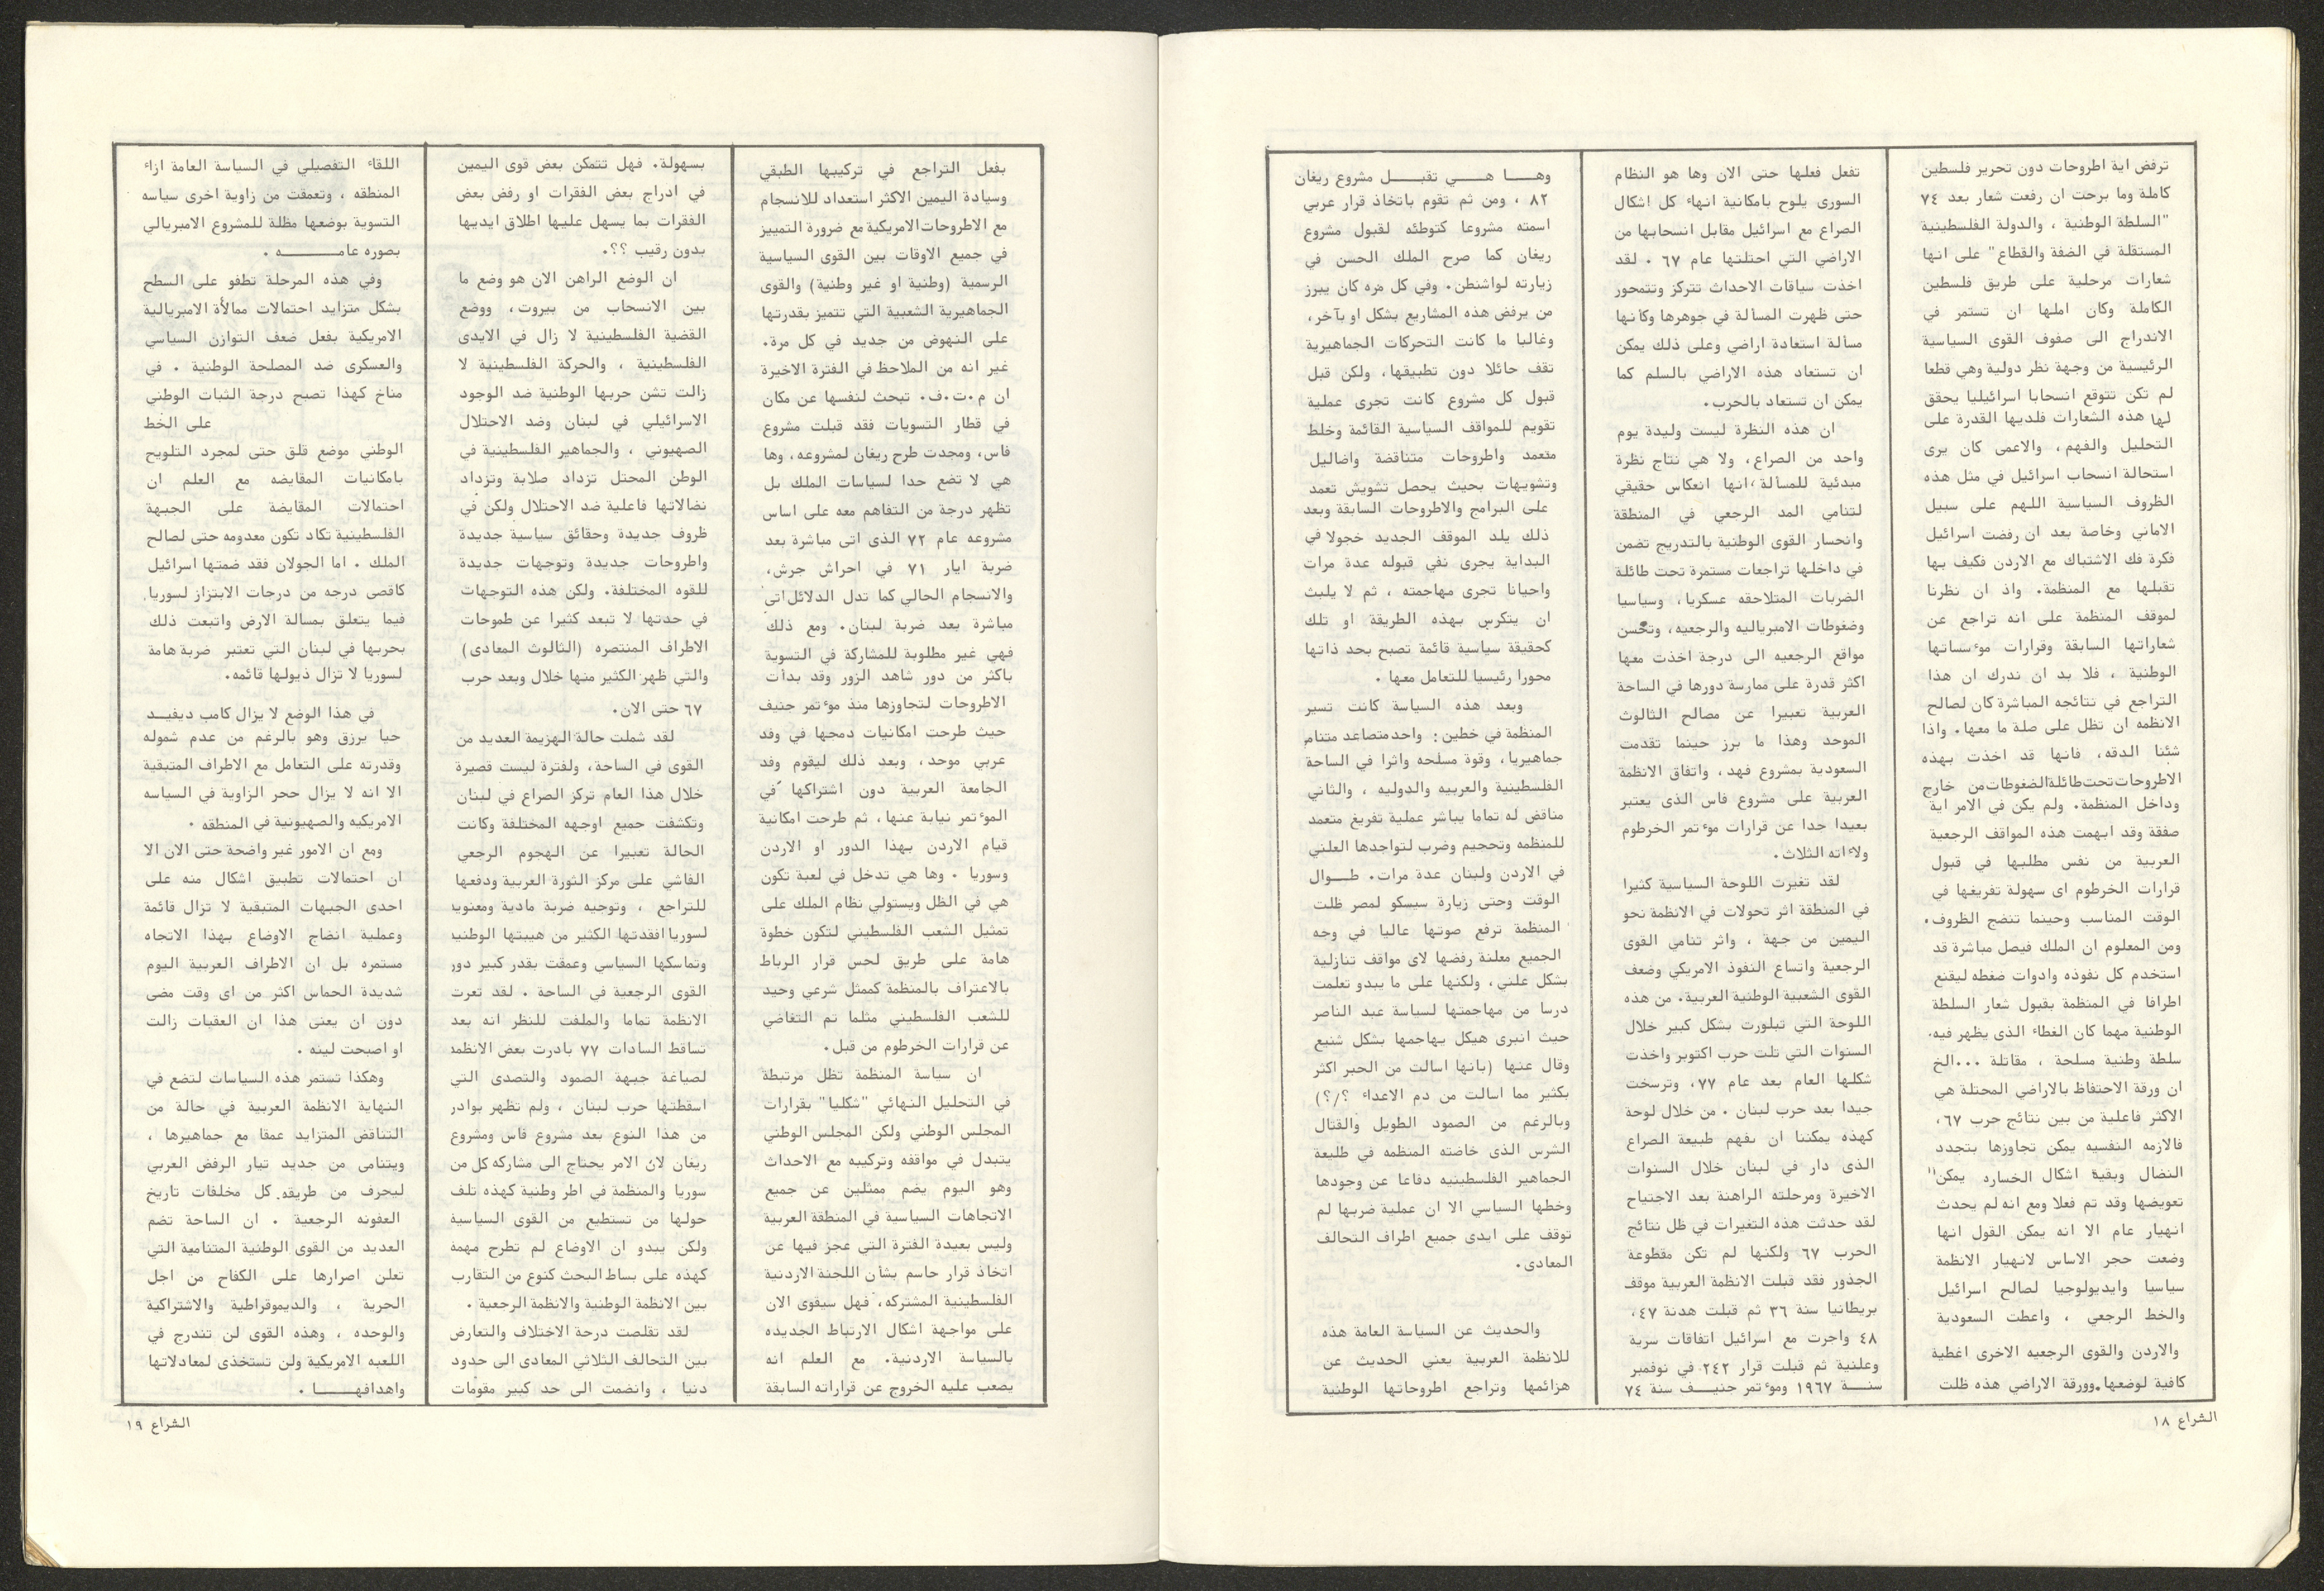 ترفض اية اطروحات دون تحرير فلسطين
كاملة وما برحت ان رفعت شعار بعد ٧٤
"السلطة الوطنية ، والدولة الفلسطينية
المستقلة في الضفة والقطاع" على انها
شعارات مرحلية على طريق فلسطين
الكاملة وكان املها ان تستمر في
الاندراج الى صفوف القوى السياسية
الرئيسية من وجهة نظر دولية وهي قطعا
لم تكن تتوقع انسحابا اسرائيليا يحقق
لها هذه الشعارات فلديها القدرة على
التحليل والفهم، والاعمى كان يرى
استحالة انسحاب اسرائيل في مثل هذه
الظروف السياسية اللهم على سبيل
الاماني وخاصة بعد ان رفضت اسرائيل
فكرة فك الاشتباك مع الاردن فكيف بها
تقبلها مع المنظمة. واذ ان نظرنا
لموقف المنظمة على انه تراجع عن
شعاراتها السابقة وقرارات موءسساتها
الوطنية ، فلا بد ان ندرك ان هذا
التراجع في نتائجه المباشرة كان لصالح
الانظمه ان تظل على صلة ما معها. واذا
شئنا الدقه، فانها قد اخذت بهذه
الاطروحات تحت طائلة الضغوطات من خارج
وداخل المنظمة. ولم يكن في الامر اية
صفقة وقد ابهمت هذه المواقف الرجعية
العربية من نفس مطلبها في قبول
قرارات الخرطوم اى سهولة تفريغها في
الوقت المناسب وحينما تنضج الظروف.
ومن المعلوم ان الملك فيصل مباشرة قد
استخدم كل نفوذه وادوات ضغطه ليقنع
اطرافا في المنظمة بقبول شعار السلطة
الوطنية مهما كان الغطاء الذى يظهر فيه.
سلطة وطنية مسلحة ، مقاتلة ...الخ
ان ورقة الاحتفاظ بالاراضي المحتلة هي
الاكثر فاعلية من بين نتائج حرب ٦٧،
فالازمه النفسيه يمكن تجاوزها بتجدد
النضال وبقية اشكال الخساره يمكن"
تعويضها وقد تم فعلا ومع انه لم يحدث
انهيار عام الا انه يمكن القول انها
وضعت حجر الاساس لانهيار الانظمة
سياسيا وايديولوجيا لصالح اسرائيل
والخط الرجعي ، واعطت السعودية
والاردن والقوى الرجعيه الاخرى اغطية
كافية لوضعها.وورقة الاراضي هذه ظلت
تفعل فعلها حتى الان وها هو النظام
السورى يلوح بامكانية انهاء كل اشكال
الصراع مع اسرائيل مقابل انسحابها من
الاراضي التي احتلتها عام ٦٧ . لقد
اخذت سياقات الاحداث تتركز وتتمحور
حتى ظهرت المسألة في جوهرها وكانها
مسألة استعادة اراضي وعلى ذلك يمكن
ان تستعاد هذه الاراضي بالسلم كما
يمكن ان تستعاد بالحرب.
ان هذه النظرة ليست وليدة يوم
واحد من الصراع، ولا هي نتاج نظرة
مبدئية للمسألة، انها انعكاس حقيقي
لتنامي المد الرجعي في المنطقة
وانحسار القوى الوطنية بالتدريج تضمن
في داخلها تراجعات مستمرة تحت طائلة
الضربات المتلاحقه عسكريا، وسياسيا
وضغوطات الامبرياليه والرجعيه، وتحسن
مواقع الرجعيه الى درجة اخذت معها
اكثر قدرة على ممارسة دورها في الساحة
العربية تعبيرا عن مصالح الثالوث
الموحد وهذا ما برز حينما تقدمت
السعودية بمشروع فهد، واتفاق الانظمة
العربية على مشروع فاس الذى يعتبر
بعيدا جدا عن قرارات موءتمر الخرطوم
ولاءاته الثلاث.
لقد تغيرت اللوحة السياسية كثيرا
في المنطقة اثر تحولات في الانظمة نحو
اليمين من جهة ، واثر تنامي القوى
الرجعية واتساع النفوذ الامريكي وضعف
القوى الشعبية الوطنية العربية. من هذه
اللوحة التي تبلورت بشكل كبير خلال
السنوات التي تلت حرب اكتوبر واخذت
شكلها العام بعد عام ٧٧، وترسخت
جيدا بعد حرب لبنان . من خلال لوحة
كهذه يمكننا ان نفهم طبيعة الصراع
الذى دار في لبنان خلال السنوات
الاخيرة ومرحلته الراهنة بعد الاجتياح
لقد حدثت هذه التغيرات في ظل نتائج
الحرب ٦٧ ولكنها لم تكن مقطوعة
الجذور فقد قبلت الانظمة العربية موقف
بريطانيا سنة ٣٦ ثم قبلت هدنة ٤٧،
٤٨ واجرت مع اسرائيل اتفاقات سرية
وعلنية ثم قبلت قرار ٢٤٢ في نوفمبر
سنــة ١٩٦٧ وموءتمر جنيــف سنة ٧٤
وهــا هــي تقبــل مشروع ريغان
٨٢ ، ومن ثم تقوم باتخاذ قرار عربي
اسمته مشروعا كتوطئه لقبول مشروع
ريغان كما صرح الملك الحسن في
زيارته لواشنطن. وفي كل مره كان يبرز
من يرفض هذه المشاريع بشكل او بآخر،
وغالبا ما كانت التحركات الجماهيرية
تقف حائلا دون تطبيقها، ولكن قبل
قبول كل مشروع كانت تجرى عملية
تقويم للمواقف السياسية القائمة وخلط
متعمد واطروحات متناقضة واضاليل
وتشويهات بحيث يحصل تشويش تعمد
على البرامج والاطروحات السابقة وبعد
ذلك يلد الموقف الجديد خجولا في
البداية يجرى نفي قبوله عدة مرات
واحيانا تجرى مهاجمته ، ثم لا يلبث
ان يتكرس بهذه الطريقة او تلك
كحقيقة سياسية قائمة تصبح بحد ذاتها
محورا رئيسيا للتعامل معها .
وبعد هذه السياسة كانت تسير
المنظمة في خطين: واحد متصاعد متنام
جماهيريا، وقوة مسلحه واثرا في الساحة
الفلسطينية والعربيه والدوليه ، والثاني
مناقض له تماما يباشر عملية تفريغ متعمد
للمنظمه وتحجيم وضرب لتواجدها العلني
في الاردن ولبنان عدة مرات. طــوال
الوقت وحتى زيارة سيسكو لمصر ظلت
المنظمة ترفع صوتها عاليا في وجه
الجميع معلنة رفضها لاى مواقف تنازلية
بشكل علني، ولكنها على ما يبدو تعلمت
درسا من مهاجمتها لسياسة عبد الناصر
حيث انبرى هيكل يهاجمها بشكل شنيع
وقال عنها (بانها اسالت من الحبر اكثر
بكثير مما اسالت من دم الاعداء ؟/؟)
وبالرغم من الصمود الطويل والقتال
الشرس الذى خاضته المنظمه في طليعة
الجماهير الفلسطينيه دفاعا عن وجودها
وخطها السياسي الا ان عملية ضربها لم
توقف على ايدى جميع اطراف التحالف
المعادى.
والحديث عن السياسة العامة هذه
للانظمة العربية يعني الحديث عن
هزائمها وتراجع اطروحاتها الوطنية
الشراع ١٨
بفعل التراجع في تركيبها الطبقي
وسيادة اليمين الاكثر استعداد للانسجام
مع الاطروحات الامريكية مع ضرورة التمييز
في جميع الاوقات بين القوى السياسية
الرسمية (وطنية او غير وطنية) والقوى
الجماهيرية الشعبية التي تتميز بقدرتها
على النهوض من جديد في كل مرة.
غير انه من الملاحظ في الفترة الاخيرة
ان م.ت.ف. تبحث لنفسها عن مكان
في قطار التسويات فقد قبلت مشروع
فاس، ومجدت طرح ريغان لمشروعه، وها
هي لا تضع حدا لسياسات الملك بل
تظهر درجة من التفاهم معه على اساس
مشروعه عام ٧٢ الذى اتى مباشرة بعد
ضربة ايار ٧١ في احراش جرش،
والانسجام الحالي كما تدل الدلائل اتي
مباشرة بعد ضربة لبنان. ومع ذلك
فهي غير مطلوبة للمشاركة في التسوية
باكثر من دور شاهد الزور وقد بدأت
الاطروحات لتجاوزها منذ موءتمر جنيف
حيث طرحت امكانيات دمجها في وفد
عربي موحد، وبعد ذلك ليقوم وفد
الجامعة العربية دون اشتراكها في
الموءتمر نيابة عنها، ثم طرحت امكانية
قيام الاردن بهذا الدور او الاردن
وسوريا . وها هي تدخل في لعبة تكون
هي في الظل ويستولي نظام الملك على
تمثيل الشعب الفلسطيني لتكون خطوة
هامة على طريق لحس قرار الرباط
بالاعتراف بالمنظمة كممثل شرعي وحيد
للشعب الفلسطيني مثلما تم التغاضي
عن قرارات الخرطوم من قبل.
ان سياسة المنظمة تظل مرتبطة
في التحليل النهائي "شكليا" بقرارات
المجلس الوطني ولكن المجلس الوطني
يتبدل في مواقفه وتركيبه مع الاحداث
وهو اليوم يضم ممثلين عن جميع
الاتجاهات السياسية في المنطقة العربية
وليس بعيدة الفترة التي عجز فيها عن
اتخاذ قرار حاسم بشأن اللجنة الاردنية
الفلسطينية المشتركه، فهل سيقوى الان
على مواجهة اشكال الارتباط الجديده
بالسياسة الاردنية. مع العلم انه
يصعب عليه الخروج عن قراراته السابقة
بسهولة. فهل تتمكن بعض قوى اليمين
في ادراج بعض الفقرات او رفض بعض
الفقرات بما يسهل عليها اطلاق ايديها
بدون رقيب ؟؟.
ان الوضع الراهن الان هو وضع ما
بين الانسحاب من بيروت، ووضع
القضية الفلسطينية لا زال في الايدى
الفلسطينية ، والحركة الفلسطينية لا
زالت تشن حربها الوطنية ضد الوجود
الاسرائيلي في لبنان وضد الاحتلال
الصهيوني ، والجماهير الفلسطينية في
الوطن المحتل تزداد صلابة وتزداد
نضالاتها فاعلية ضد الاحتلال ولكن في
ظروف جديدة وحقائق سياسية جديدة
واطروحات جديدة وتوجهات جديدة
للقوه المختلفة. ولكن هذه التوجهات
في حدتها لا تبعد كثيرا عن طموحات
الاطراف المنتصره (الثالوث المعادى)
والتي ظهر الكثير منها خلال وبعد حرب
٦٧ حتى الان.
لقد شملت حالة الهزيمة العديد من
القوى في الساحة، ولفترة ليست قصيرة
خلال هذا العام تركز الصراع في لبنان
وتكشفت جميع اوجهه المختلفة وكانت
الحالة تعبيرا عن الهجوم الرجعي
الفاشي على مركز الثورة العربية ودفعها
للتراجع ، وتوجيه ضربة مادية ومعنويه
لسوريا افقدتها الكثير من هيبتها الوطنيه
وتماسكها السياسي وعمقت بقدر كبير دور
القوى الرجعية في الساحة . لقد تعرت
الانظمة تماما والملفت للنظر انه بعد
تساقط السادات ٧٧ بادرت بعض الانظمه
لصياغة جبهة الصمود والتصدى التي
اسقطتها حرب لبنان ، ولم تظهر بوادر
من هذا النوع بعد مشروع فاس ومشروع
ريغان لان الامر يحتاج الى مشاركه كل من
سوريا والمنظمة في اطر وطنية كهذه تلف
حولها من تستطيع من القوى السياسية
ولكن يبدو ان الاوضاع لم تطرح مهمة
كهذه على بساط البحث كنوع من التقارب
بين الانظمة الوطنية والانظمة الرجعية .
لقد تقلصت درجة الاختلاف والتعارض
بين التحالف الثلاثي المعادى الى حدود
دنيا ، وانضمت الى حد كبير مقومات
اللقاء التفصيلي في السياسة العامة ازاء
المنطقه ، وتعمقت من زاوية اخرى سياسه
التسوية بوضعها مظلة للمشروع الامبريالي
بصوره عامــــــه .
وفي هذه المرحلة تطفو على السطح
بشكل متزايد احتمالات ممالأة الامبريالية
الامريكية بفعل ضعف التوازن السياسي
والعسكرى ضد المصلحة الوطنية . في
مناخ كهذا تصبح درجة الثبات الوطني
على الخط
الوطني موضع قلق حتى لمجرد التلويح
بامكانيات المقايضه مع العلم ان
احتمالات المقايضة على الجبهة
الفلسطينية تكاد تكون معدومه حتى لصالح
الملك . اما الجولان فقد ضمتها اسرائيل
كاقصى درجه من درجات الابتزاز لسوريا.
فيما يتعلق بمسالة الارض واتبعت ذلك
بحربها في لبنان التي تعتبر ضربة هامة
لسوريا لا تزال ذيولها قائمه.
في هذا الوضع لا يزال كامب ديفيــد
حيا يرزق وهو بالرغم من عدم شموله
وقدرته على التعامل مع الاطراف المتبقية
الا انه لا يزال حجر الزاوية في السياسه
الامريكيه والصهيونية في المنطقه .
ومع ان الامور غير واضحة حتى الان الا
ان احتمالات تطبيق اشكال منه على
احدى الجبهات المتبقية لا تزال قائمة
وعملية انضاج الاوضاع بهذا الاتجاه
مستمره بل ان الاطراف العربية اليوم
شديدة الحماس اكثر من اى وقت مضى
دون ان يعنى هذا ان العقبات زالت
او اصبحت لينه .
وهكذا تستمر هذه السياسات لتضع في
النهاية الانظمة العربية في حالة من
التناقض المتزايد عمقا مع جماهيرها ،
ويتنامى من جديد تيار الرفض العربي
ليجرف من طريقه. كل مخلفات تاريخ
العفونه الرجعية . ان الساحة تضم
العديد من القوى الوطنية المتنامية التي
تعلن اصرارها على الكفاح من اجل
الحرية ، والديموقراطية والاشتراكية
والوحده ، وهذه القوى لن تندرج في
اللعبه الامريكية ولن تستخذى لمعادلاتها
واهدافهــــا .
الشراع ١٩